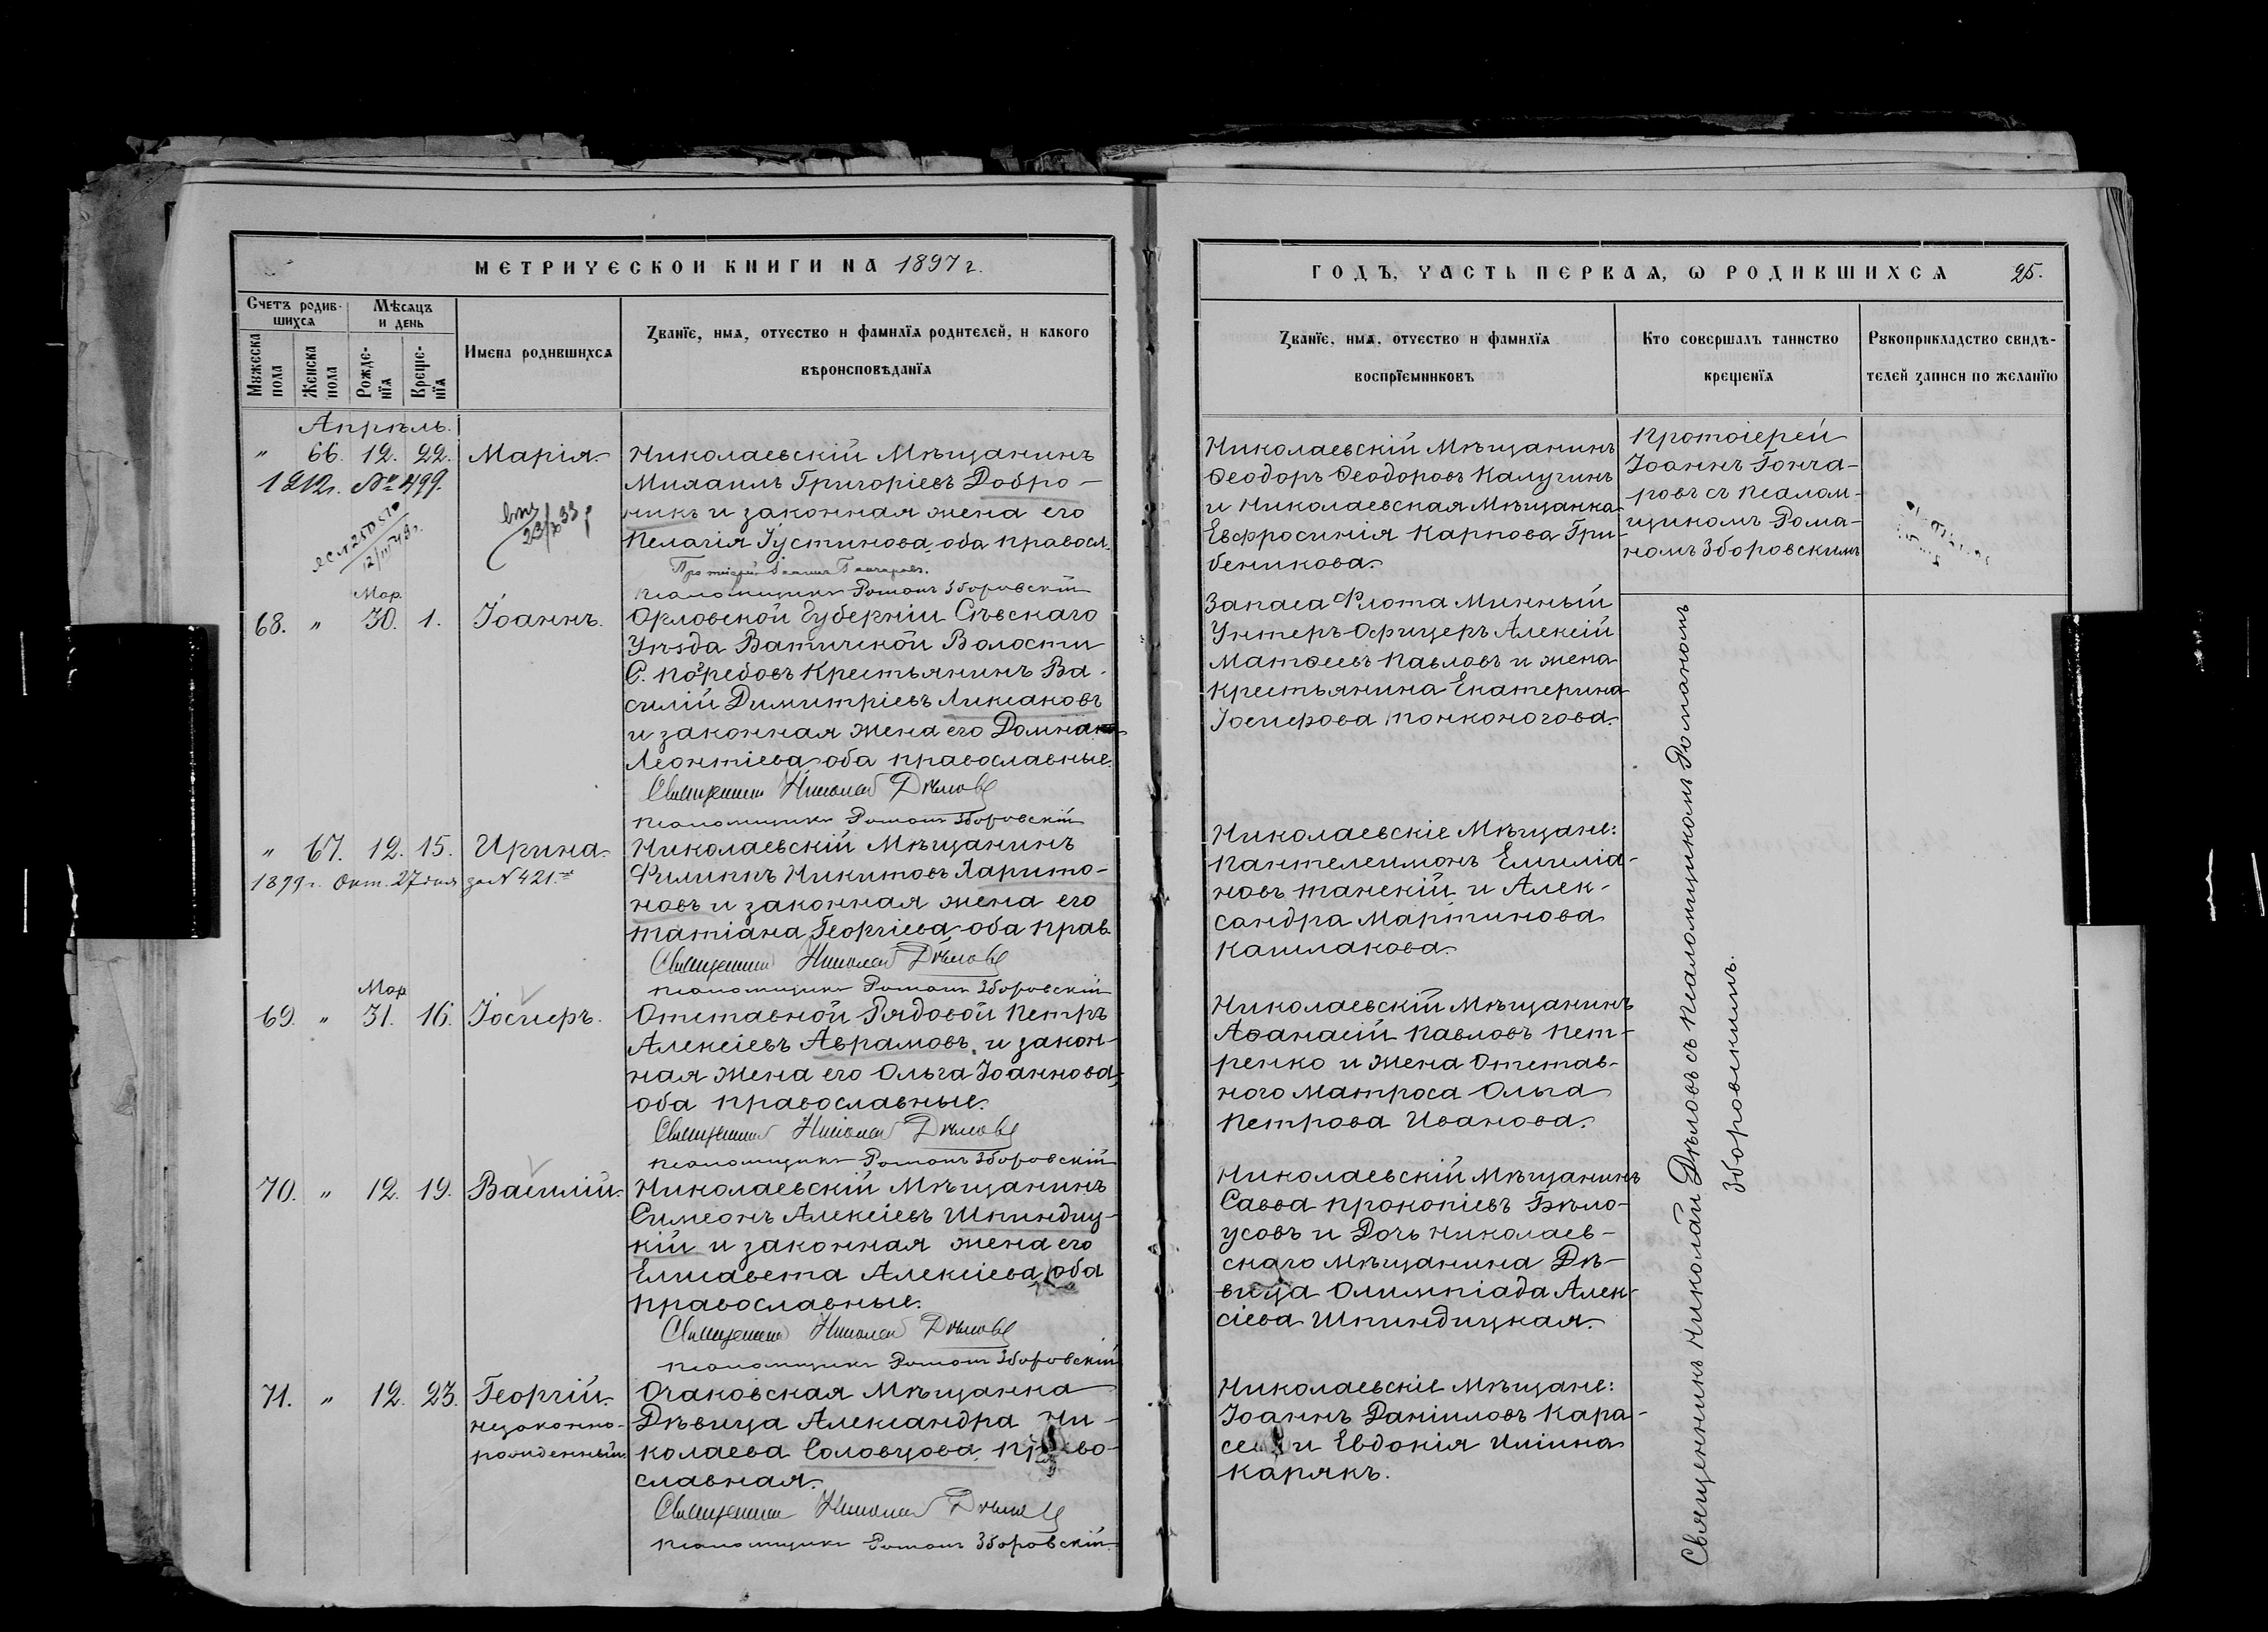 МЕТРИЧЕСКОЙ КНИГИ НА 1897 г.
Счетъ родив-
шихся
Мѣсяцъ
и день
Мужеска
пола
Женска
пола
Рожде-
нїя
Креще-
нїя
Имена родившихся
Званїе, имя, отчество и фамилїя родителей, и какого
вѣроисповѣданїя
Апрѣль.
" 66. 12. 22. Марія.
1912г. № 499.
23/X 33
12/III 49г.
Николаевскій Мѣщанинъ
Михаилъ Григоріевъ Добро-
никъ и законная жена его
Пелагія Іустинова, оба правосл.
Протоіерей Іоаннъ Гончаровъ.
Псаломщикъ Романъ Зборовскій
Мар.
68. " 30. 1. Іоаннъ.
Орловской Губерніи Сѣвскаго
Уѣзда Ватичской Волости
С. Погребовъ Крестьянинъ Ва-
силій Димитріевъ Ликсаковъ
и законная жена его Домна
Леонтіева оба православные.
Священникъ Николай Дѣловъ
Псаломщикъ Романъ Зборовскій
" 67. 12. 15. Ирина.
1899 г. Окт. 27 дня за № 421.
Николаевскій Мѣщанинъ
Филиппъ Никитовъ Харито-
новъ и законная жена его
Татіана Георгіева оба прав.
Священникъ Николай Дѣловъ
Псаломщикъ Романъ Зборовскій
Мар.
69. " 31. 16. Іосифъ.
Отставной Рядовой Петръ
Алексіевъ Аврамовъ, и закон-
ная жена его Ольга Іоаннова,
оба православные.
Священникъ Николай Дѣловъ
Псаломщикъ Романъ Зборовскій
70. " 12. 19. Василій.
Николаевскій Мѣщанинъ
Симеонъ Алексіевъ Шпиндиц-
кій и законная жена его
Елисавета Алексіева, оба
православные.
Священникъ Николай Дѣловъ
Псаломщикъ Романъ Зборовскій
71. " 12. 23. Георгій.
незаконно-
рожденный.
Очаковская Мѣщанка
Дѣвица Александра Ни-
колаева Соловцова, право-
славная.
Священникъ Николай Дѣловъ
Псаломщикъ Романъ Зборовскій
ГОДЪ, ЧАСТЬ ПЕРВАЯ, Ѡ РОДИВШИХСЯ 25.
Званїе, имя, отчество и фамилїя
воспрїемниковъ
Кто совершалъ таинство
крещенїя
Рукоприкладство свидѣ-
телей записи по желанїю
Николаевскій Мѣщанинъ
Ѳеодоръ Ѳеодоровъ Калугинъ
и Николаевская Мѣщанка
Евфросинія Карпова Гри-
беникова.
Протоіерей
Іоаннъ Гонча-
ровъ съ Псалом-
щикомъ Рома-
номъ Зборовскимъ
Запаса Флота Минный
Унтеръ-Офицеръ Алексій
Матѳеевъ Павловъ и жена
крестьянина Екатерина
Іосифова Тонконогова.
Николаевскіе Мѣщане:
Пантелеимонъ Емиліа-
новъ Танскій и Алек-
сандра Мартинова
Кашлакова.
Николаевскій Мѣщанинъ
Аѳанасій Павловъ Пет-
ренко и жена Отстав-
ного Матроса Ольга
Петрова Иванова.
Николаевскій Мѣщанинъ
Савва Прокопіевъ Бѣло-
усовъ и Дочь Николаев-
скаго Мѣщанина Дѣ-
вица Олимпіада Алек-
сіева Шпиндицкая.
Николаевскіе Мѣщане:
Іоаннъ Даніиловъ Кара-
и Евдокія Иліина
Карякъ.
Священникъ Николай Дѣловъ съ Псаломщикомъ Романомъ
Зборовскимъ.